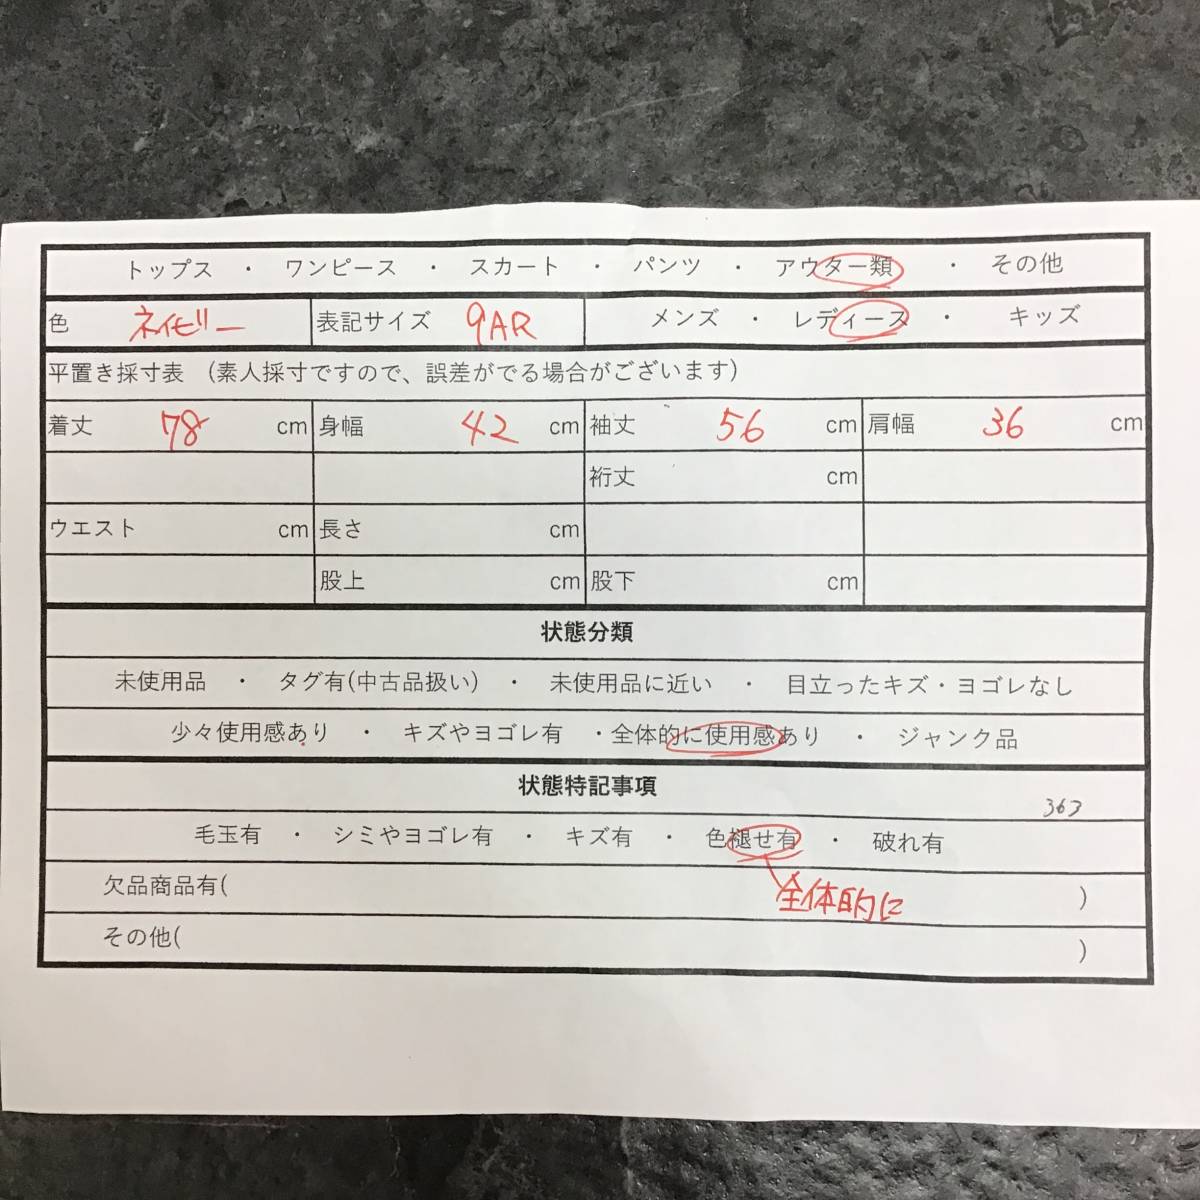 トップス ・ ワンピース ・ スカート ・ パンツ ・ アウター類 ・ その他
色 ネイビー 表記サイズ 9AR メンズ ・ レディース ・ キッズ
平置き採寸表 (素人採寸ですので、誤差がでる場合がございます)
着丈 78 cm 身幅 42 cm 袖丈 56 cm 肩幅 36 cm
裄丈 cm
ウエスト cm 長さ cm
股上 cm 股下 cm
状態分類
未使用品 ・ タグ有(中古品扱い) ・ 未使用品に近い ・ 目立ったキズ・ヨゴレなし
少々使用感あり ・ キズやヨゴレ有 ・全体的に使用感あり ・ ジャンク品
状態特記事項
363
毛玉有 ・ シミやヨゴレ有 ・ キズ有 ・ 色褪せ有 ・ 破れ有
全体的に
欠品商品有( )
その他( )